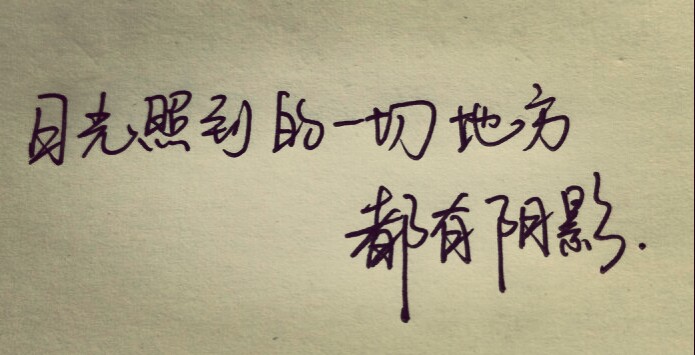 目光照到的一切地方
都有阴影.